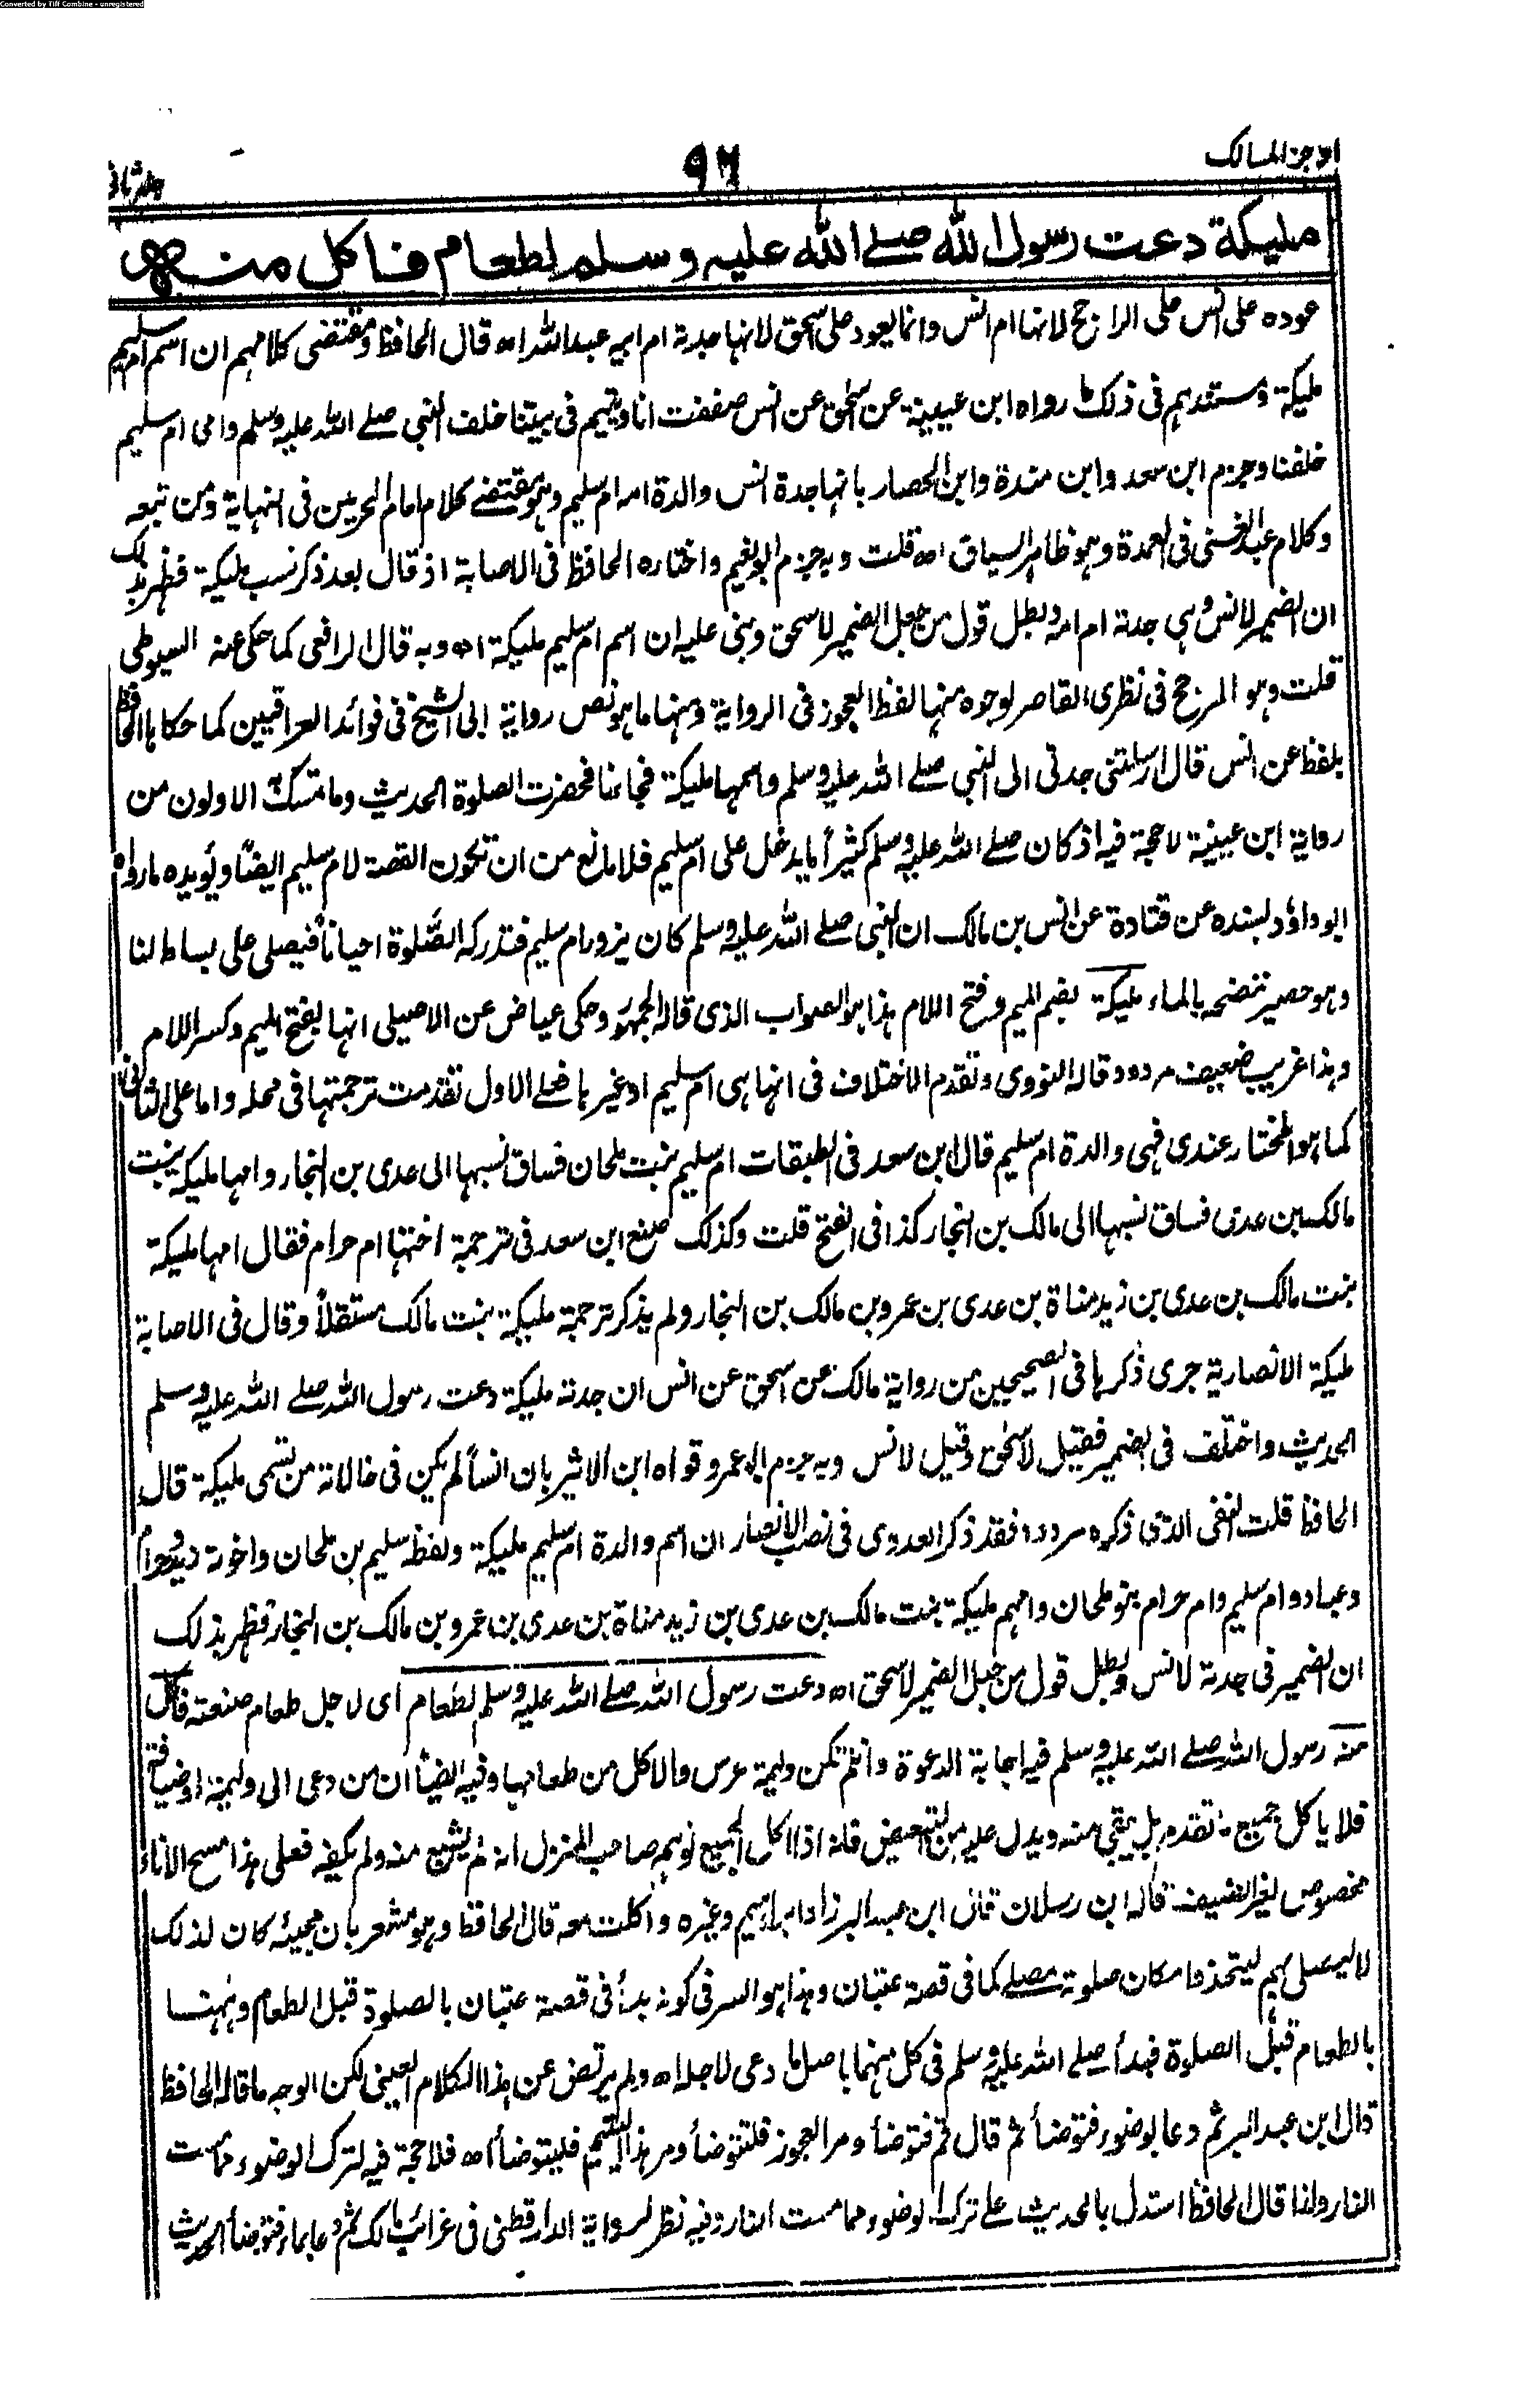 Converted by Tiff Combine - unregistered
اوجز المسالك
٩٦
جلد ثانی
مليكة دعت رسول الله صلے الله عليه وسلم لطعام فاكل منه
عوده على انس على الراجح لانها ام انس وانما يعود على اسحق لانها جدته ام ابيه عبد الله اه قال الحافظ ومقتضى كلامهم ان اسم ام سليم
مليكة ومستندهم فى ذلك ما رواه ابن عيينة عن اسحق عن انس صففت انا ويتيم فى بيتنا خلف النبى صلے الله عليه وسلم وامى ام سليم
خلفنا وجزم ابن سعد وابن مندة وابن الحصار بانها جدة انس والدة امه ام سليم وهو مقتضے كلام امام الحرمين فى النهاية ومن تبعه
وكلام عبد الغنى فى العمدة وهو ظاهر السياق اه قلت وبه جزم ابو نعيم واختاره الحافظ فى الاصابة اذ قال بعد ذكر نسب مليكة فظهر بذلك
ان الضمير لانس وهى جدته ام امه وبطل قول من جعل الضمير لاسحق وبنى عليه ان اسم ام سليم مليكة اه وبه قال الرافعى كما حكى عنه السيوطى
قلت وهو المرجح فى نظرى القاصر لوجوه منها لفظ العجوز فى الرواية ومنها ما هو نص رواية ابى الشيخ فى فوائد العراقيين كما حكاها الحافظ
بلفظ عن انس قال ارسلتنى جدتى الى النبى صلے الله عليه وسلم واسمها مليكة فجاءنا فحضرت الصلوة الحديث وما تمسك الاولون من
رواية ابن عيينة لا حجة فيه اذ كان صلے الله عليه وسلم كثيراً ما يدخل على ام سليم فلا مانع من ان تكون القصة لام سليم ايضاً ويؤيده ما رواه
ابو داؤد بسنده عن قتادة عن انس بن مالك ان النبى صلے الله عليه وسلم كان يزور ام سليم فتدركه الصّلوة احياناً فيصلى على بساط لنا
وهو حصير تنضحه بالماء مليكة بضم الميم وفتح اللام هذا هو الصواب الذى قاله الجمهور وحكى عياض عن الاصيلى انها بفتح الميم وكسر اللام
وهذا غريب ضعيف مردود قاله النووى وتقدم الاختلاف فى انها هى ام سليم او غيرها فعلے الاول تقدمت ترجمتها فى محله واما على الثانى
كما هو المختار عندى فهى والدة ام سليم قال ابن سعد فى الطبقات ام سليم بنت ملحان فساق نسبها الى عدى بن النجار وامها مليكة بنت
مالك بن عدى فساق نسبها الى مالك بن النجار كذا فى الفتح قلت وكذلك صنع ابن سعد فى ترجمة اختها ام حرام فقال امها مليكة
بنت مالك بن عدى بن زيد مناة بن عدى بن عمرو بن مالك بن النجار ولم يذكر ترجمة مليكة بنت مالك مستقلاً وقال فى الاصابة
مليكة الانصارية جرى ذكرها فى الصحيحين من رواية مالك عن اسحق عن انس ان جدته مليكة دعت رسول الله صلے الله عليه وسلم
الحديث واختلف فى الضمير فقيل لاسحق وقيل لانس وبه جزم ابو عمر وقواه ابن الاثير بان انساً لم يكن فى خالاته من تسمى مليكة قال
الحافظ قلت النفى الذى ذكره مردود فقد ذكر العدوى فى نصب الانصار ان اسم والدة ام سليم مليكة ولفظه سليم بن ملحان واخوته زيد وحرام
وعباد وام سليم وام حرام بنو ملحان وامهم مليكة بنت مالك بن عدى بن زيد مناة بن عدى بن عمرو بن مالك بن النجار فظهر بذلك
ان الضمير فى جدته لانس وبطل قول من جعل الضمير لاسحق اه دعت رسول الله صلے الله عليه وسلم لطعام اى لاجل طعام صنعته فاكل
منه رسول الله صلے الله عليه وسلم فيه اجابة الدعوة وان لم تكن وليمة عرس والاكل من طعامها وفيه ايضاً ان من دعى الى وليمة او ضيافة
فلا يأكل جميع ما تقدم بل يبقى منه ويدل عليه من التبعيض فانه اذا اكل الجميع توهم صاحب المنزل انه لم يشبع منه ولم يكفه فعلى هذا مسح الاناء
مخصوص لغير الضيف قاله ابن رسلان قال ابن عبد البر زاد ابراهيم وغيره واكلت معه قال الحافظ وهو مشعر بان مجيئه كان لذلك
لا ليصلى بهم ليتخذوا مكان صلوته مصلے كما فى قصة عتبان وهذا هو السر فى كونه بدأ فى قصة عتبان بالصلوة قبل الطعام وههنا
بالطعام قبل الصلوة فبدأ صلے الله عليه وسلم فى كل منهما باصل ما دعى لاجله اه ولم يرتض عن هذا الكلام العينى لكن الوجه ما قاله الحافظ
قال ابن عبد البر ثم دعا بوضوء فتوضأ ثم قال قم فتوضأ ومر العجوز فلتتوضأ ومر هذا اليتيم فليتوضأ اه فلا حجة فيه لترك الوضوء مما مست
النار ولذا قال الحافظ استدل بالحديث على ترك الوضوء مما مست النار وفيه نظر لرواية الدارقطنى فى غرائب مالك ثم دعا بماء فتوضأ الحديث